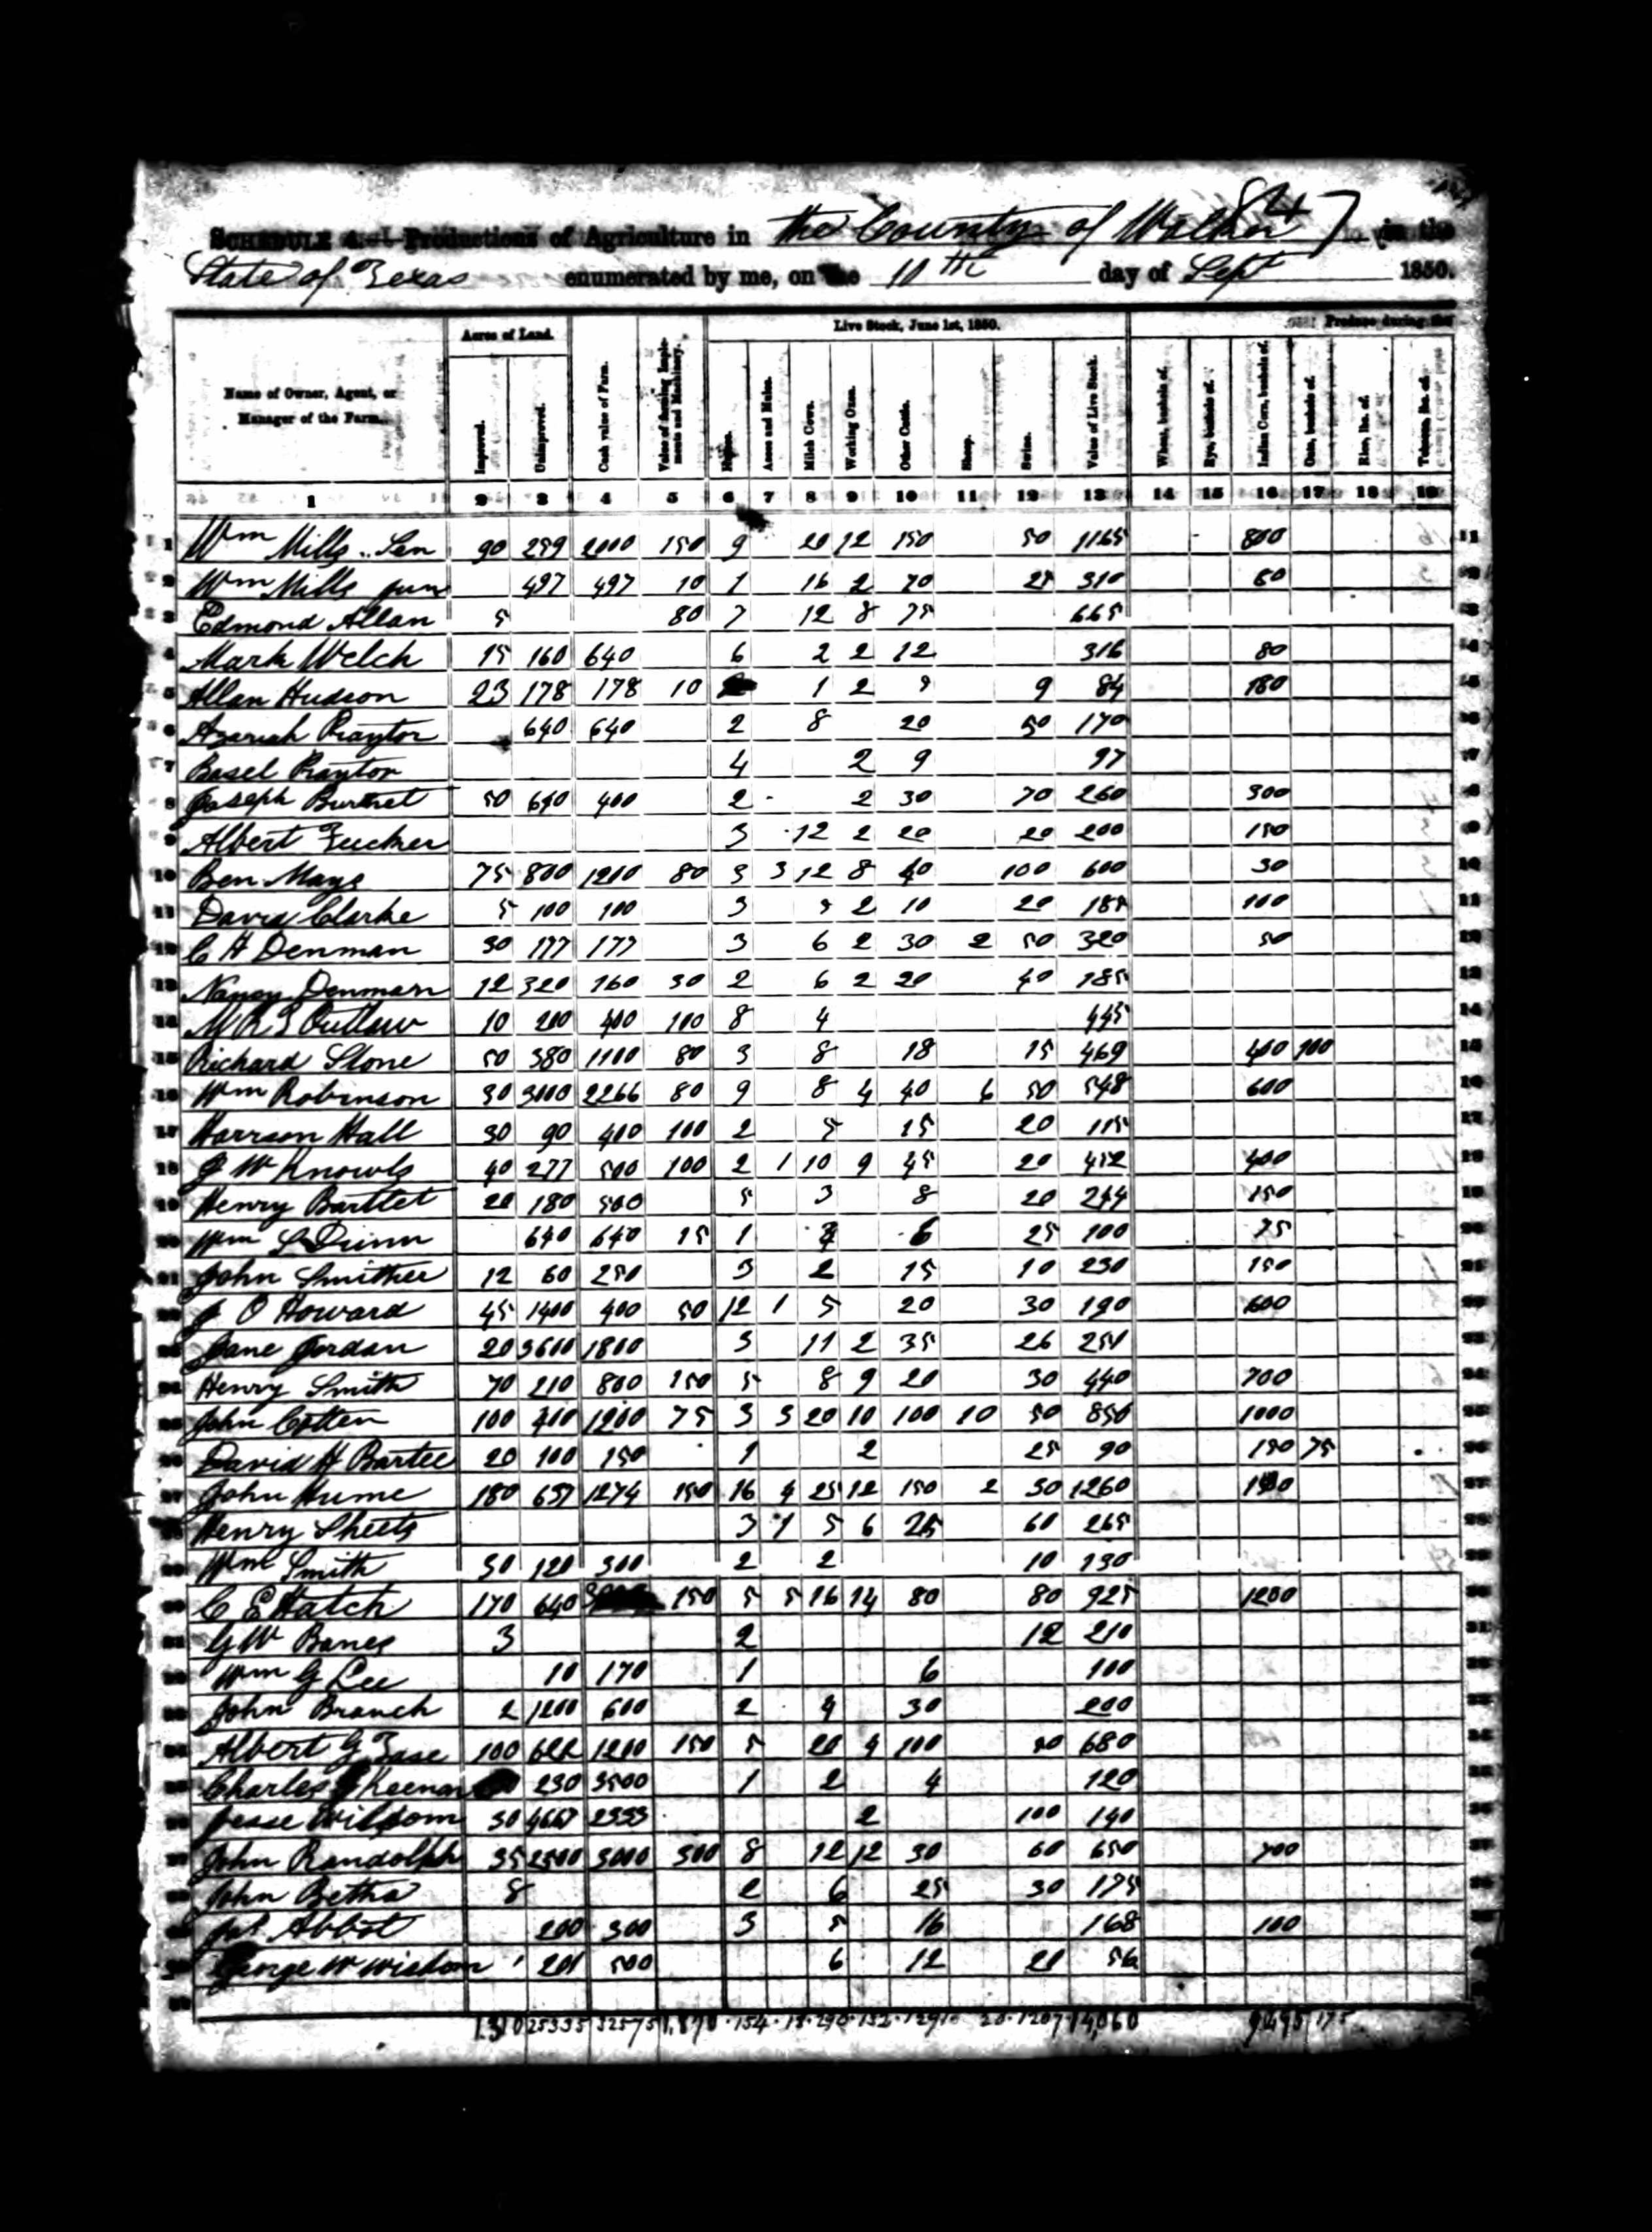 SCHEDULE 4.—Productions of Agriculture in the County of Walker in the
84
State of Texas enumerated by me, on the 10th day of Sept 1850.
Acres of Land. Live Stock, June 1st, 1850. Produce during the
Name of Owner, Agent, or Manager of the Farm. Improved. Unimproved. Cash value of Farm. Value of farming Implements and Machinery. Horses. Asses and Mules. Milch Cows. Working Oxen. Other Cattle. Sheep. Swine. Value of Live Stock. Wheat, bushels of. Rye, bushels of. Indian Corn, bushels of. Oats, bushels of. Rice, lbs. of. Tobacco, lbs. of.
1 2 3 4 5 6 7 8 9 10 11 12 13 14 15 16 17 18 19
1 Wm Mills Sen 90 299 2000 150 9 20 12 150 50 1165 800
2 Wm Mills jun 497 497 10 1 16 2 70 25 310 60
3 Edmond Allan 5 80 7 12 8 75 665
4 Mark Welch 15 160 640 6 2 2 12 316 80
5 Allan Hudson 23 178 178 10 1 2 9 84 180
6 Azariah Praytor 640 640 2 8 20 50 170
7 Basel Praytor 4 2 9 97
8 Joseph Burtnet 50 640 400 2 2 30 70 260 300
9 Albert Tucker 3 12 2 20 20 200 150
10 Ben Mays 75 800 1200 80 3 3 12 8 40 100 600 30
11 David Clarke 5 100 100 3 2 10 20 185 100
12 C H Denman 30 177 177 3 6 2 30 2 50 320 50
13 Nancy Denman 12 320 160 30 2 6 2 20 40 185
14 Outlaw 10 200 400 100 8 4 445
15 Richard Stone 50 380 1100 80 3 8 18 15 469 400 100
16 Wm Robinson 30 3100 2266 80 9 8 4 40 6 50 548 600
17 Harrson Hall 30 90 400 100 2 5 15 20 115
18 J W Knowls 40 277 500 100 2 1 10 9 45 20 412 400
19 Henry Bartlet 20 180 500 5 3 8 20 244 150
20 Wm S Dunn 640 640 15 1 6 25 100 75
21 John Smither 12 60 250 3 2 15 10 230 150
22 J O Howard 45 1400 400 50 12 1 5 20 30 190 600
23 Jane Jordan 20 3600 1800 3 11 2 35 26 251
24 Henry Smith 70 210 800 150 5 8 9 20 30 440 700
25 John Cotten 100 400 1200 75 3 3 20 10 100 10 50 850 1000
26 David H Bartee 20 100 150 1 2 25 90 150 75
27 John Hume 180 637 1274 150 16 4 25 12 150 2 50 1260
28 Henry Sheets 3 1 5 6 25 60 265
29 Wm Smith 30 120 300 2 2 10 130
30 C E Hatch 170 640 150 5 5 16 14 80 80 925 1200
31 G W Banes 3 2 12 210
32 Wm G Lee 10 170 1 6 100
33 John Branch 2 1200 600 2 4 30 200
34 Albert G 100 622 1200 150 5 20 4 100 50 680
35 Charles Keenan 230 3500 1 2 4 120
36 Jesse Wilsom 30 4667 2333 2 100 140
37 John Randolph 35 2500 3000 300 8 12 12 30 60 650 700
38 John Betha 8 2 6 25 30 175
39 Abbot 200 300 3 5 16 168 100
40 George W Wisdom 201 500 6 12 20 56
25335 32575 1,870 154 18 290 132 1291 20 1207 14,060 9495 175